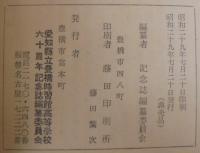 昭和二十九年七月二十日印刷
昭和二十九年七月二十日発行
（非売品）
編纂者 記念誌編纂委員会
豊橋市西八町
印刷者 藤田印刷所
藤田繁次
豊橋市富本町
発行者
愛知県立豊橋時習館高等学校
六十周年記念誌編纂委員会